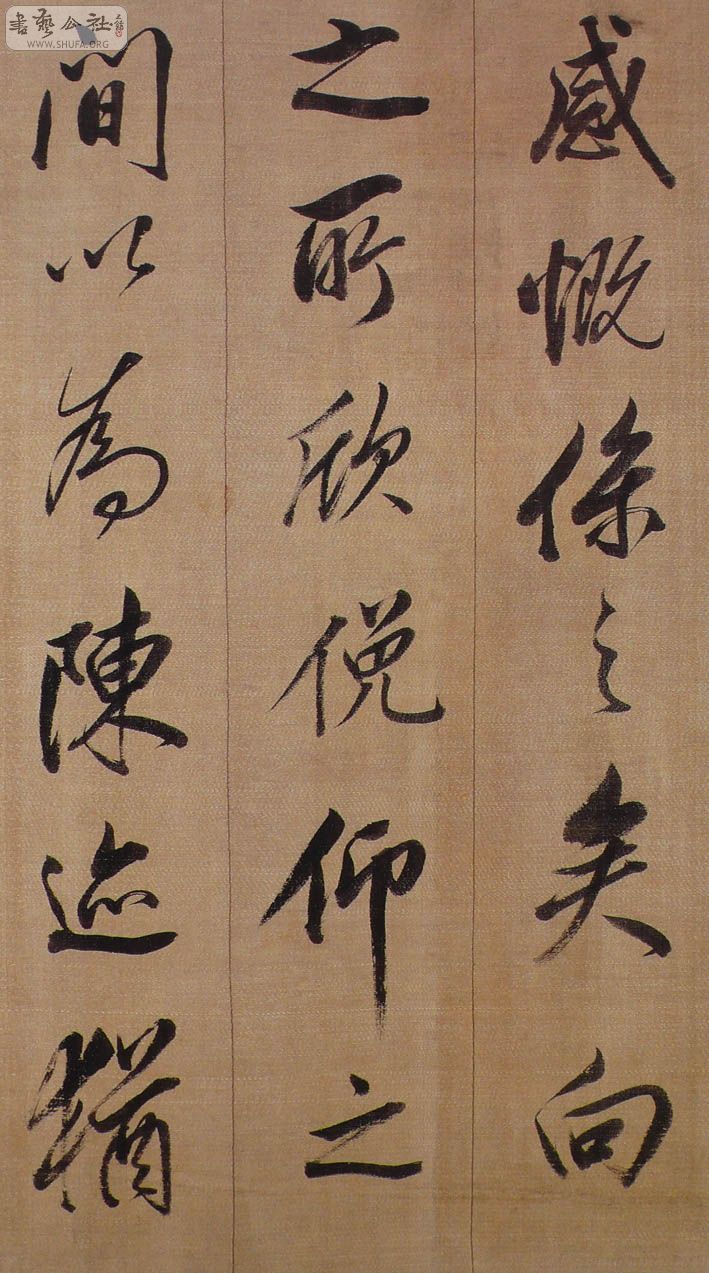 感慨係之矣向
之所欣俛仰之
間以為陳迹猶
書藝公社
WWW.SHUFA.ORG